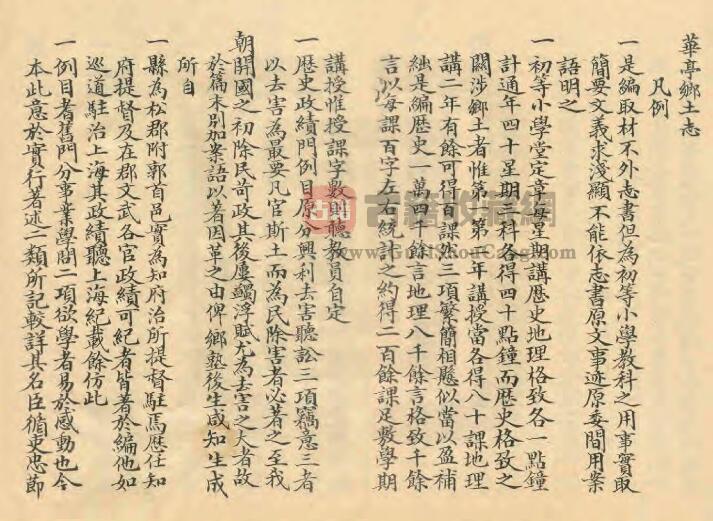 華亭鄉土志
凡例
一是編取材不外志書但為初等小學教科之用事實取
簡要文義求淺顯不能依志書原文事迹原委間用案
語明之
一初等小學堂定章每星期講歷史地理格致各一點鐘
計通年四十星期三科各得四十點鐘而歷史格致之
關涉鄉土者惟第一第二年講授當各得八十課地理
講二年有餘可得百課然三項繁簡相懸似當以盈補
絀是編歷史一萬四千餘言地理八千餘言格致千餘
言以每課百字左右統計之約得二百餘課足數學期
講授惟授課字數則聽教員自定
一歷史政績門例目原分興利去害聽訟三項竊意三者
以去害為最要凡官斯土而為民除害者必著之至我
朝開國之初除民苛政其後屢蠲浮賦尤為去害之大者故
於篇末別加案語以著因革之由俾鄉塾後生咸知生成
所自
一縣為松郡附郭首邑實為知府治所提督駐焉歷任知
府提督及在郡文武各官政績可紀者皆著於編他如
巡道駐治上海其政績聽上海紀載餘仿此
一例目耆舊門分事業學問二項欲學者易於感動也今
本此意於實行著述二類所記較詳其名臣循吏忠節
古籍收藏網
www.GuJiShouCang.com